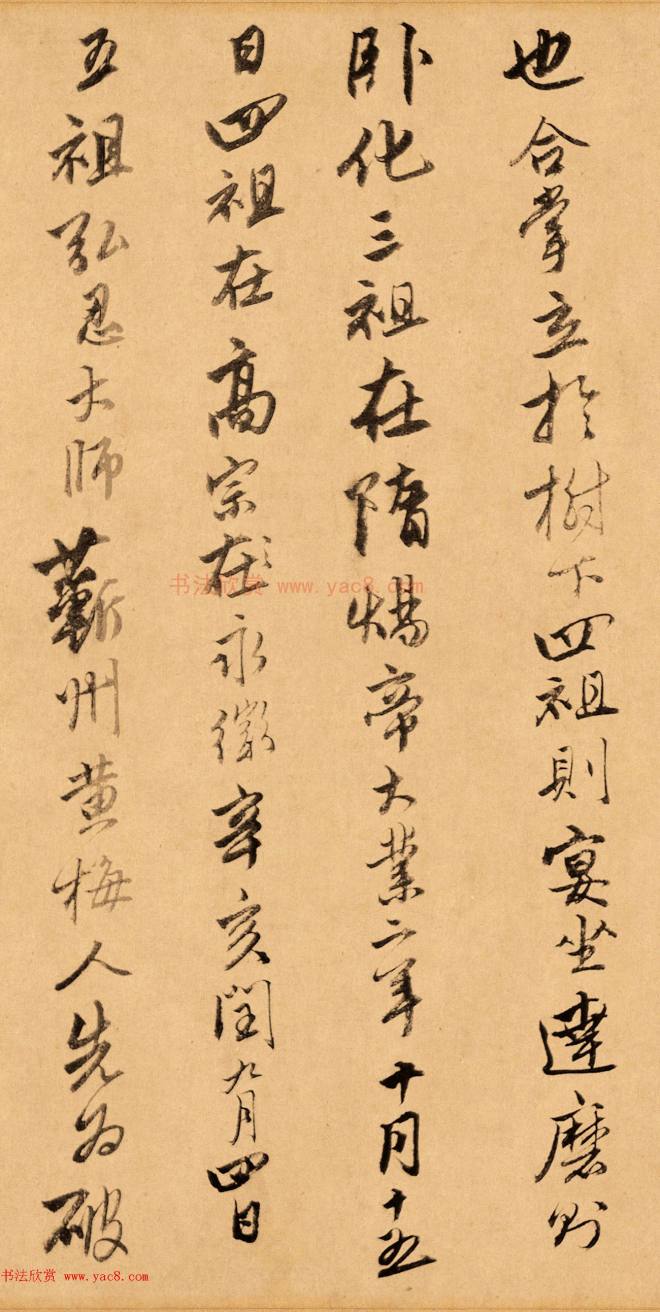 也合掌立於樹下四祖則宴坐達磨則
卧化三祖在隋煬帝大業二年十月十五
日四祖在高宗在永徽辛亥閏九月四日
五祖弘忍大師蘄州黄梅人先為破
书法欣赏 www.yac8.com
书法欣赏 www.yac8.com